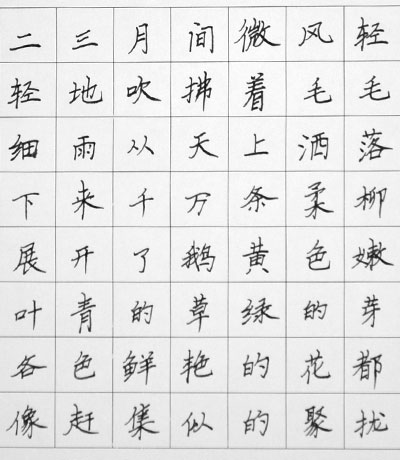 二三月间微风轻
轻地吹拂着毛毛
细雨从天上洒落
下来千万条柔柳
展开了鹅黄色嫩
叶青的草绿的芽
各色鲜艳的花都
像赶集似的聚拢